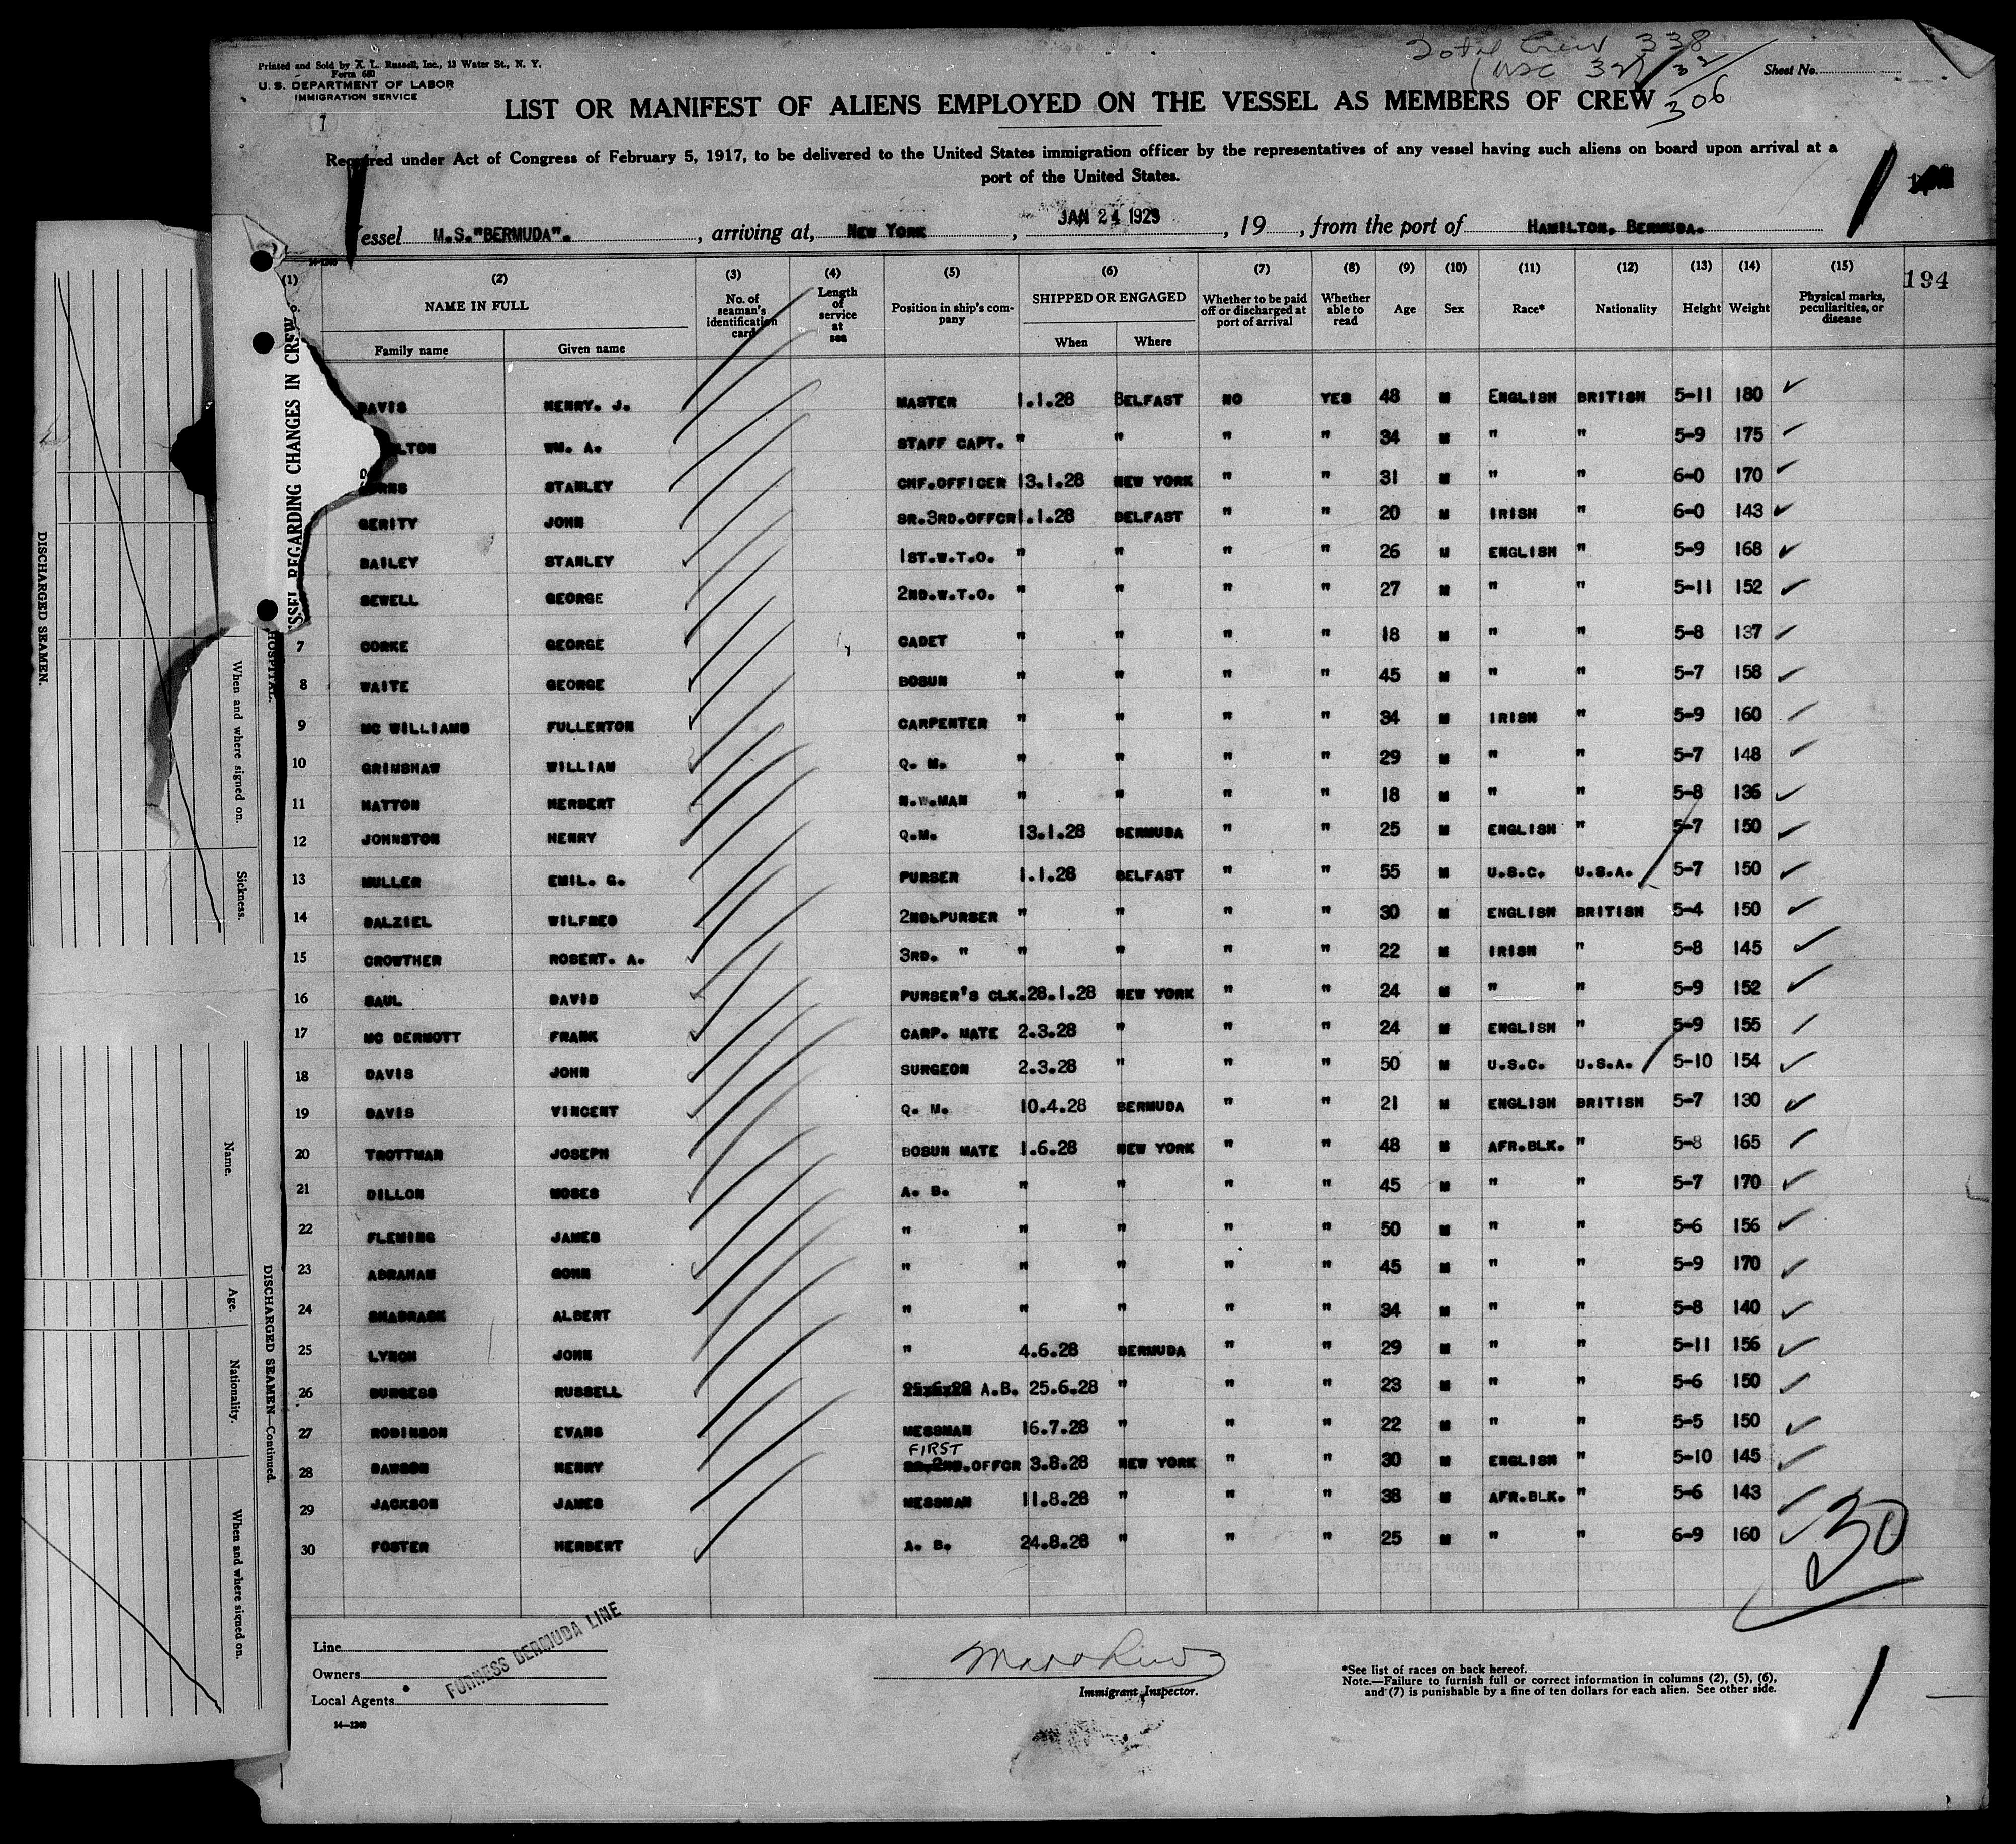 Total Crew 338
Printed and Sold by A. L. Russell, Inc., 13 Water St., N. Y.
Form 680
U. S. DEPARTMENT OF LABOR
IMMIGRATION SERVICE
(USC 32) 32
306
Sheet No.
1
LIST OR MANIFEST OF ALIENS EMPLOYED ON THE VESSEL AS MEMBERS OF CREW
Required under Act of Congress of February 5, 1917, to be delivered to the United States immigration officer by the representatives of any vessel having such aliens on board upon arrival at a
port of the United States.
Vessel M.S."BERMUDA". , arriving at, NEW YORK , JAN 24 1929 , 19 , from the port of HAMILTON, BERMUDA.
14-1240
194
(1) (2) (3) (4) (5) (6) (7) (8) (9) (10) (11) (12) (13) (14) (15)
NAME IN FULL
Family name Given name
No. of seaman's identification card
Length of service at sea
Position in ship's company
SHIPPED OR ENGAGED
When Where
Whether to be paid off or discharged at port of arrival
Whether able to read
Age Sex Race* Nationality Height Weight
Physical marks, peculiarities, or disease
DAVIS HENRY. J. MASTER 1.1.28 BELFAST NO YES 48 M ENGLISH BRITISH 5-11 180
LTON WM. A. STAFF CAPT. " " " " 34 M " " 5-9 175
RNS STANLEY CHF.OFFICER 13.1.28 NEW YORK " " 31 M " " 6-0 170
GERITY JOHN SR.3RD.OFFCR 1.1.28 BELFAST " " 20 M IRISH " 6-0 143
BAILEY STANLEY 1ST.W.T.O. " " " " 26 M ENGLISH " 5-9 168
SEWELL GEORGE 2ND.W.T.O. " " " " 27 M " " 5-11 152
7 CORKE GEORGE CADET " " " " 18 M " " 5-8 137
8 WAITE GEORGE BOSUN " " " " 45 M " " 5-7 158
9 MC WILLIAMS FULLERTON CARPENTER " " " " 34 M IRISH " 5-9 160
10 GRIMSHAW WILLIAM Q. M. " " " " 29 M " " 5-7 148
11 HATTON HERBERT N.W.MAN " " " " 18 M " " 5-8 136
12 JOHNSTON HENRY Q.M. 13.1.28 BERMUDA " " 25 M ENGLISH " 5-7 150
13 MULLER EMIL. G. PURSER 1.1.28 BELFAST " " 55 M U.S.C. U.S.A. 5-7 150
14 DALZIEL WILFRED 2ND.PURSER " " " " 30 M ENGLISH BRITISH 5-4 150
15 CROWTHER ROBERT. A. 3RD. " " " " " 22 M IRISH " 5-8 145
16 SAUL DAVID PURSER'S CLK. 28.1.28 NEW YORK " " 24 M " " 5-9 152
17 MC DERMOTT FRANK CARP. MATE 2.3.28 " " " 24 M ENGLISH " 5-9 155
18 DAVIS JOHN SURGEON 2.3.28 " " " 50 M U.S.C. U.S.A. 5-10 154
19 DAVIS VINCENT Q. M. 10.4.28 BERMUDA " " 21 M ENGLISH BRITISH 5-7 130
20 TROTTMAN JOSEPH BOSUN MATE 1.6.28 NEW YORK " " 48 M AFR.BLK. " 5-8 165
21 DILLON MOSES A. B. " " " " 45 M " " 5-7 170
22 FLEMING JAMES " " " " " 50 M " " 5-6 156
23 ABRAHAM GOHN " " " " " 45 M " " 5-9 170
24 SHADRACK ALBERT " " " " " 34 M " " 5-8 140
25 LYNCH JOHN " 4.6.28 BERMUDA " " 29 M " " 5-11 156
26 BURGESS RUSSELL 25.6.28 A.B. 25.6.28 " " " 23 M " " 5-6 150
27 ROBINSON EVANS MESSMAN 16.7.28 " " " 22 M " " 5-5 150
FIRST
28 DAWSON HENRY SR.2ND.OFFCR 3.8.28 NEW YORK " " 30 M ENGLISH " 5-10 145
29 JACKSON JAMES MESSMAN 11.8.28 " " " 38 M AFR.BLK. " 5-6 143
30 FOSTER HERBERT A. B. 24.8.28 " " " 25 M " " 6-9 160
30
Line
Owners
Local Agents
FURNESS BERMUDA LINE
14—1240
Immigrant Inspector.
*See list of races on back hereof.
Note.—Failure to furnish full or correct information in columns (2), (5), (6),
and (7) is punishable by a fine of ten dollars for each alien. See other side.
1
SSEL REGARDING CHANGES IN CREW
HOSPITAL.
DISCHARGED SEAMEN.
When and where signed on.
Sickness.
DISCHARGED SEAMEN—Continued.
Name.
Age.
Nationality.
When and where signed on.